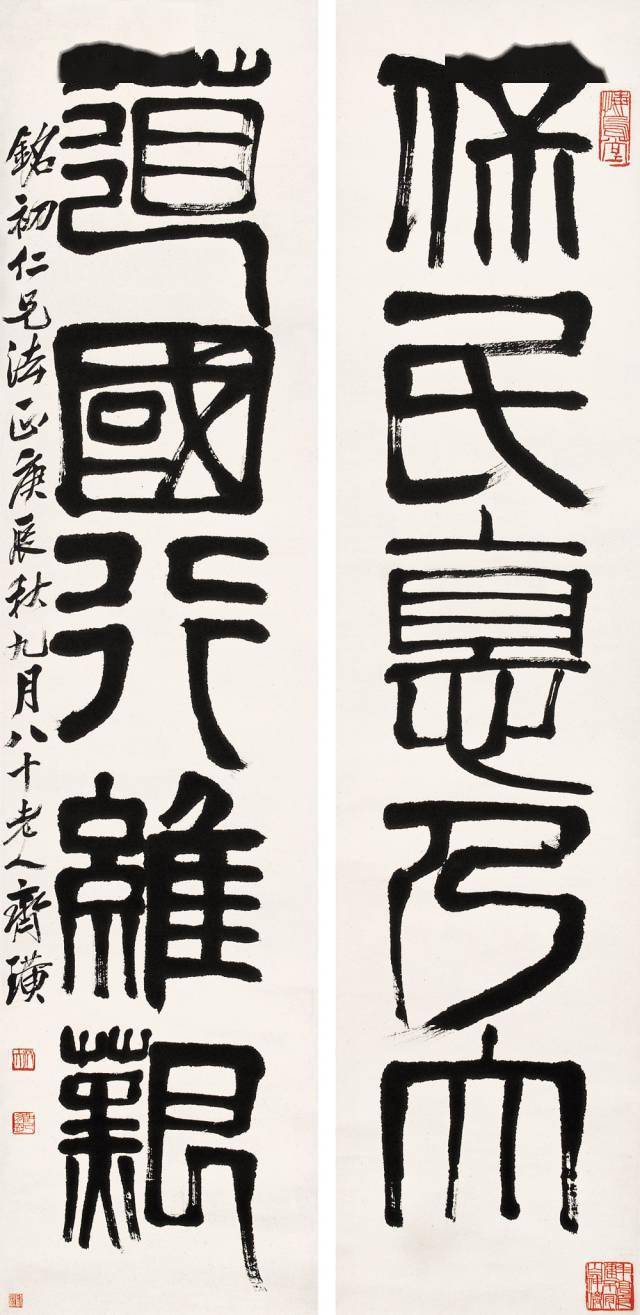 保民悳乃大
道國行維艱
銘初仁兄法正庚辰秋九月八十老人齊璜
悔烏堂